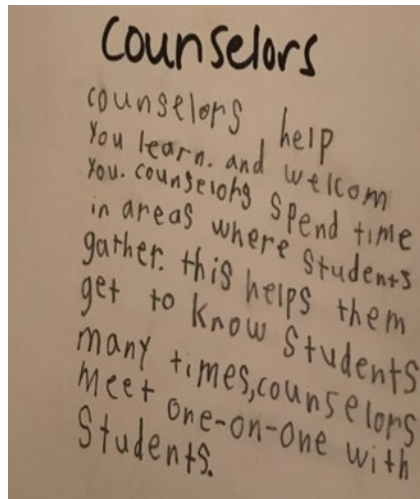 Counselors
counselors help
You learn. and welcom
You. counselors spend time
in areas where Students
gather. this helps them
get to know Students
many times, counselors
meet one-on-one with
Students.